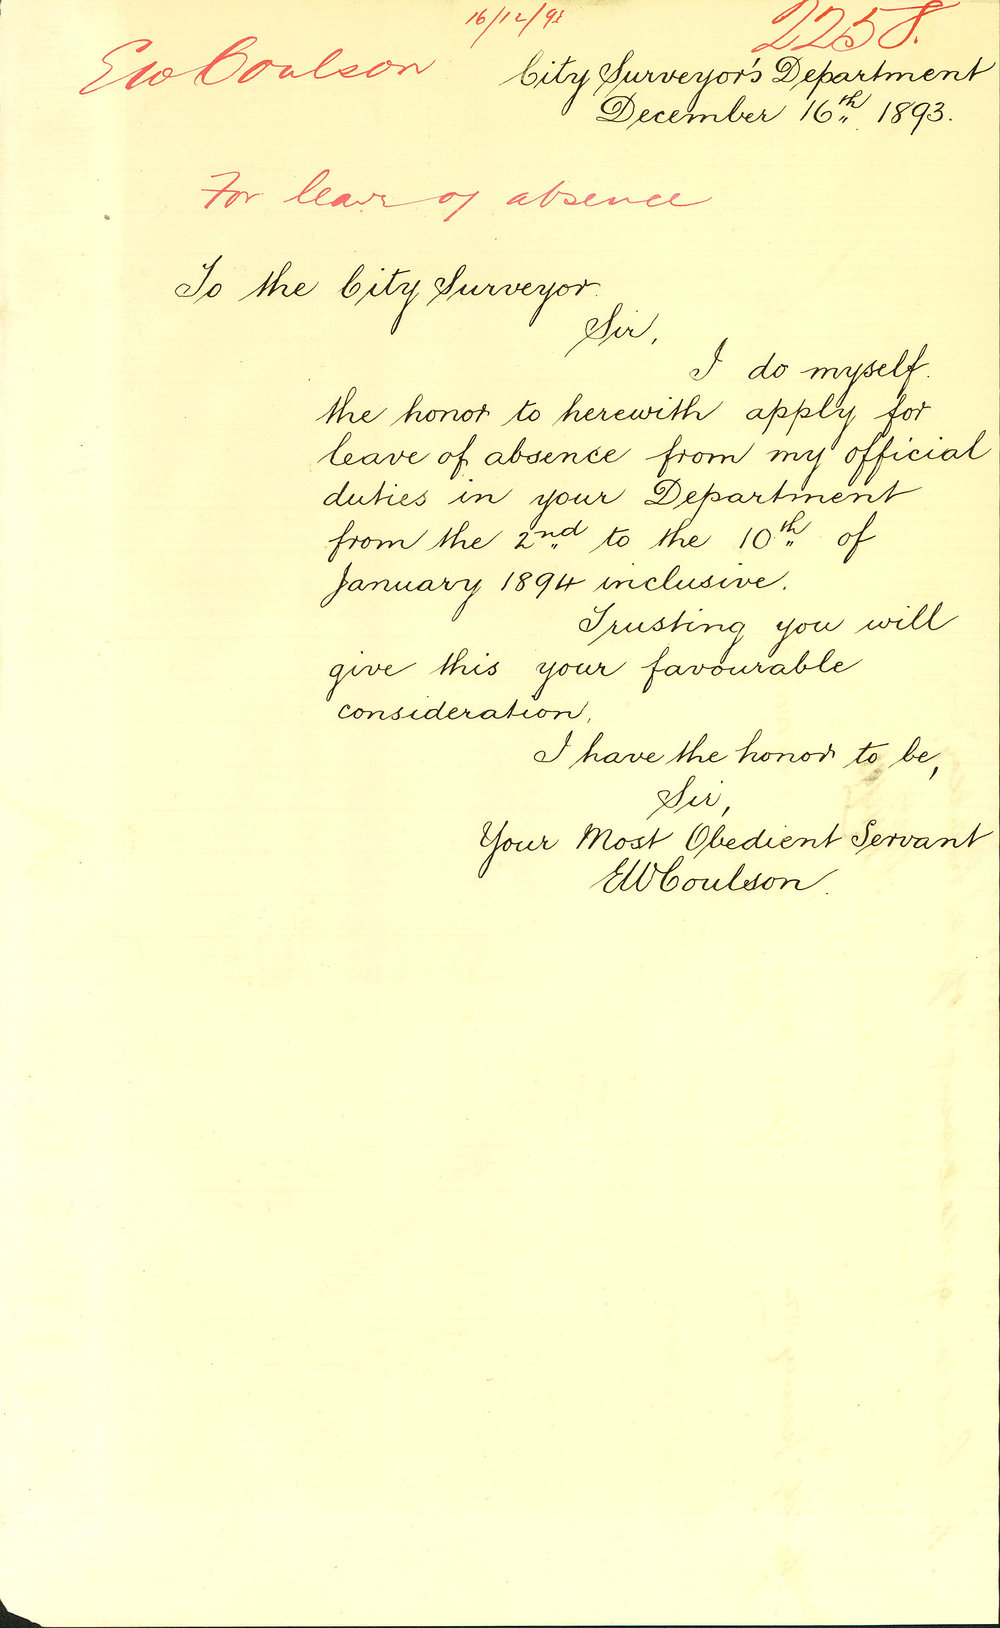 16/12/93
2258.
EW Coulson
City Surveyor's Department
December 16th 1893.
For leave of absence
To the City Surveyor.
Sir,
I do myself.
the honor to herewith apply for
leave of absence from my official
duties in your Department
from the 2nd to the 10th of
January 1894 inclusive.
Trusting you will
give this your favourable
consideration,
I have the honor to be,
Sir,
Your Most Obedient Servant
EWCoulson.